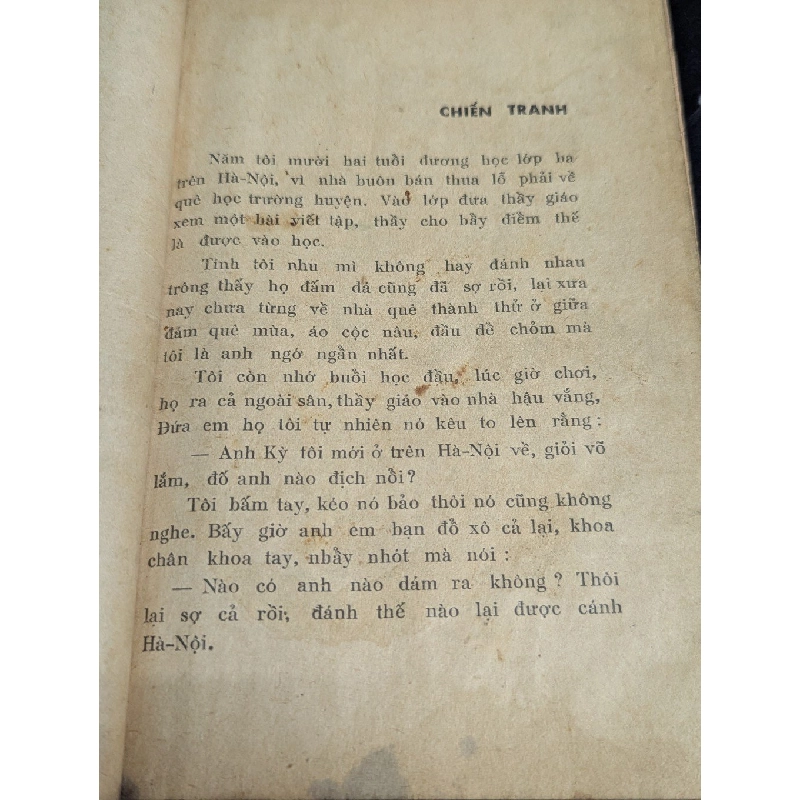 CHIẾN TRANH
Năm tôi mười hai tuổi đương học lớp ba
trên Hà-Nội, vì nhà buôn bán thua lỗ phải về
quê học trường huyện. Vào lớp đưa thầy giáo
xem một bài viết tập, thầy cho bảy điểm thế
là được vào học.
Tính tôi nhu mì không hay đánh nhau
trông thấy họ đấm đá cũng đã sợ rồi, lại xưa
nay chưa từng về nhà quê thành thử ở giữa
đám quê mùa, áo cộc nâu, đầu để chỏm mà
tôi là anh ngớ ngẩn nhất.
Tôi còn nhớ buổi học đầu, lúc giờ chơi,
họ ra cả ngoài sân, thầy giáo vào nhà hậu vắng,
Đứa em họ tôi tự nhiên nó kêu to lên rằng :
— Anh Kỳ tôi mới ở trên Hà-Nội về, giỏi võ
lắm, đố anh nào địch nổi ?
Tôi bấm tay, kéo nó bảo thôi nó cũng không
nghe. Bấy giờ anh em bạn đổ xô cả lại, khoa
chân khoa tay, nhẩy nhót mà nói :
— Nào có anh nào dám ra không ? Thôi
lại sợ cả rồi, đánh thế nào lại được cánh
Hà-Nội.